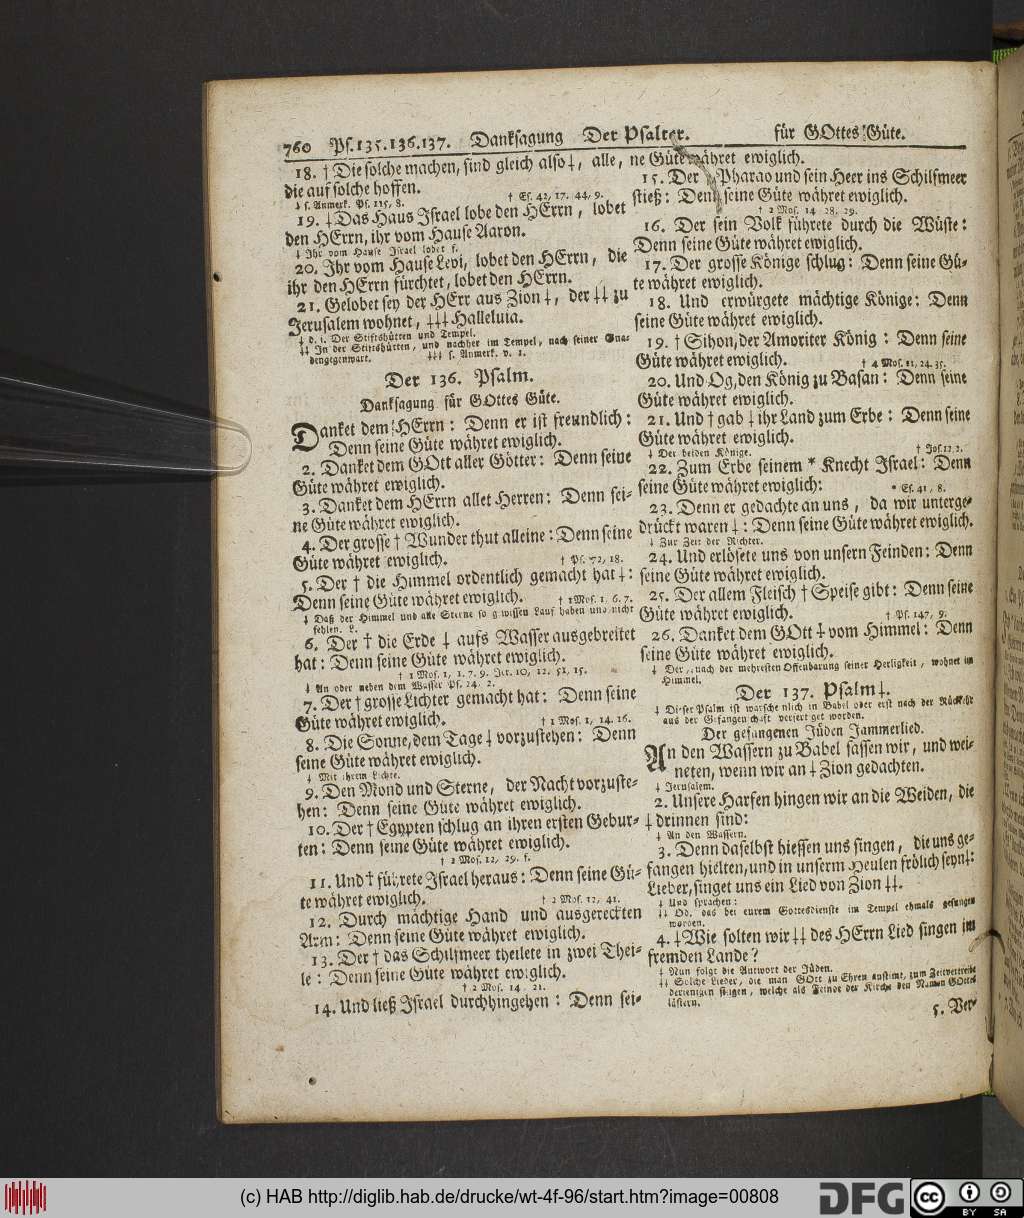 760 Ps.135.136.137. Danksagung Der Psalter. für GOttes Güte.
18. † Die solche machen, sind gleich also ‡, alle,
die auf solche hoffen.
‡ s. Anmerk. Ps. 115, 8. † Es. 42, 17. 44, 9.
19. ‡ Das Haus Israel lobe den HErrn, lobet
den HErrn, ihr vom Hause Aaron.
‡ Ihr vom Hause Israel lobet s.
20. Ihr vom Hause Levi, lobet den HErrn, die
ihr den HErrn fürchtet, lobet den HErrn.
21. Gelobet sey der HErr aus Zion ‡, der ‡‡ zu
Jerusalem wohnet, ‡‡‡ Halleluia.
‡ d. i. Der Stiftshütten und Tempel.
‡‡ In der Stiftshütten, und nachher im Tempel, nach seiner Gna-
dengegenwart. ‡‡‡ s. Anmerk. v. 1.
Der 136. Psalm.
Danksagung für GOttes Güte.
Danket dem HErrn: Denn er ist freundlich:
Denn seine Güte währet ewiglich.
2. Danket dem GOtt aller Götter: Denn seine
Güte währet ewiglich.
3. Danket dem HErrn aller Herren: Denn sei-
ne Güte währet ewiglich.
4. Der grosse † Wunder thut alleine: Denn seine
Güte währet ewiglich. † Ps. 72, 18.
5. Der † die Himmel ordentlich gemacht hat ‡:
Denn seine Güte währet ewiglich. † 1 Mos. 1, 6. 7.
‡ Daß der Himmel und alle Sterne so gewissen Lauf haben und nicht
fehlen. L.
6. Der † die Erde ‡ aufs Wasser ausgebreitet
hat: Denn seine Güte währet ewiglich.
† 1 Mos. 1, 1. 7. 9. Jer. 10, 12. 51, 15.
‡ An oder neben dem Wasser Ps. 24. 2.
7. Der † grosse Lichter gemacht hat: Denn seine
Güte währet ewiglich. † 1 Mos. 1, 14. 16.
8. Die Sonne, dem Tage ‡ vorzustehen: Denn
seine Güte währet ewiglich.
‡ Mit ihrem Lichte.
9. Den Mond und Sterne, der Nacht vorzuste-
hen: Denn seine Güte währet ewiglich.
10. Der † Egypten schlug an ihren ersten Gebur-
ten: Denn seine Güte währet ewiglich.
† 2 Mos. 12, 29. f.
11. Und † führete Israel heraus: Denn seine Gü-
te währet ewiglich. † 2 Mos. 12, 41.
12. Durch mächtige Hand und ausgereckten
Arm: Denn seine Güte währet ewiglich.
13. Der † das Schilfmeer theilete in zwei Thei-
le: Denn seine Güte währet ewiglich.
† 2 Mos. 14. 21.
14. Und ließ Israel durchhingehen: Denn sei-
ne Güte währet ewiglich.
15. Der Pharao und sein Heer ins Schilfmeer
stieß: Denn seine Güte währet ewiglich.
† 2 Mos. 14. 28. 29.
16. Der sein Volk führete durch die Wüste:
Denn seine Güte währet ewiglich.
17. Der grosse Könige schlug: Denn seine Gü-
te währet ewiglich.
18. Und erwürgete mächtige Könige: Denn
seine Güte währet ewiglich.
19. † Sihon, der Amoriter König: Denn seine
Güte währet ewiglich. † 4 Mos. 21, 24. 35.
20. Und Og, den König zu Basan: Denn seine
Güte währet ewiglich.
21. Und † gab ‡ ihr Land zum Erbe: Denn seine
Güte währet ewiglich.
‡ Der beiden Könige. † Jos. 12, 2.
22. Zum Erbe seinem * Knecht Israel: Denn
seine Güte währet ewiglich: * Es. 41, 8.
23. Denn er gedachte an uns, da wir unterge-
drückt waren ‡: Denn seine Güte währet ewiglich.
‡ Zur Zeit der Richter.
24. Und erlösete uns von unsern Feinden: Denn
seine Güte währet ewiglich.
25. Der allem Fleisch † Speise gibt: Denn seine
Güte währet ewiglich. † Ps. 147, 9.
26. Danket dem GOtt ‡ vom Himmel: Denn
seine Güte währet ewiglich.
‡ Der, nach der mehresten Offenbarung seiner Herligkeit, wohnet im
Himmel.
Der 137. Psalm ‡.
‡ Dieser Psalm ist warscheinlich in Babel oder erst nach der Rückkehr
aus der Gefangenschaft verfertiget worden.
Der gefangenen Jüden Jammerlied.
An den Wassern zu Babel sassen wir, und wei-
neten, wenn wir an ‡ Zion gedachten.
‡ Jerusalem.
2. Unsere Harfen hingen wir an die Weiden, die
‡ drinnen sind:
‡ An den Wassern.
3. Denn daselbst hiessen uns singen, die uns ge-
fangen hielten, und in unserm Heulen frölich seyn ‡:
Lieber, singet uns ein Lied von Zion ‡‡.
‡ Und sprachen:
‡‡ Od. das bei eurem Gottesdienste im Tempel ehmals gesungen
worden.
4. ‡ Wie solten wir ‡‡ des HErrn Lied singen im
fremden Lande?
‡ Nun folgt die Antwort der Jüden.
‡‡ Solche Lieder, die man GOtt zu Ehren anstimt, zum Zeitvertreib
derjenigen singen, welche als Feinde der Kirche den Namen GOttes
lästern.
5. Ver-
(c) HAB http://diglib.hab.de/drucke/wt-4f-96/start.htm?image=00808
DFG
cc BY SA